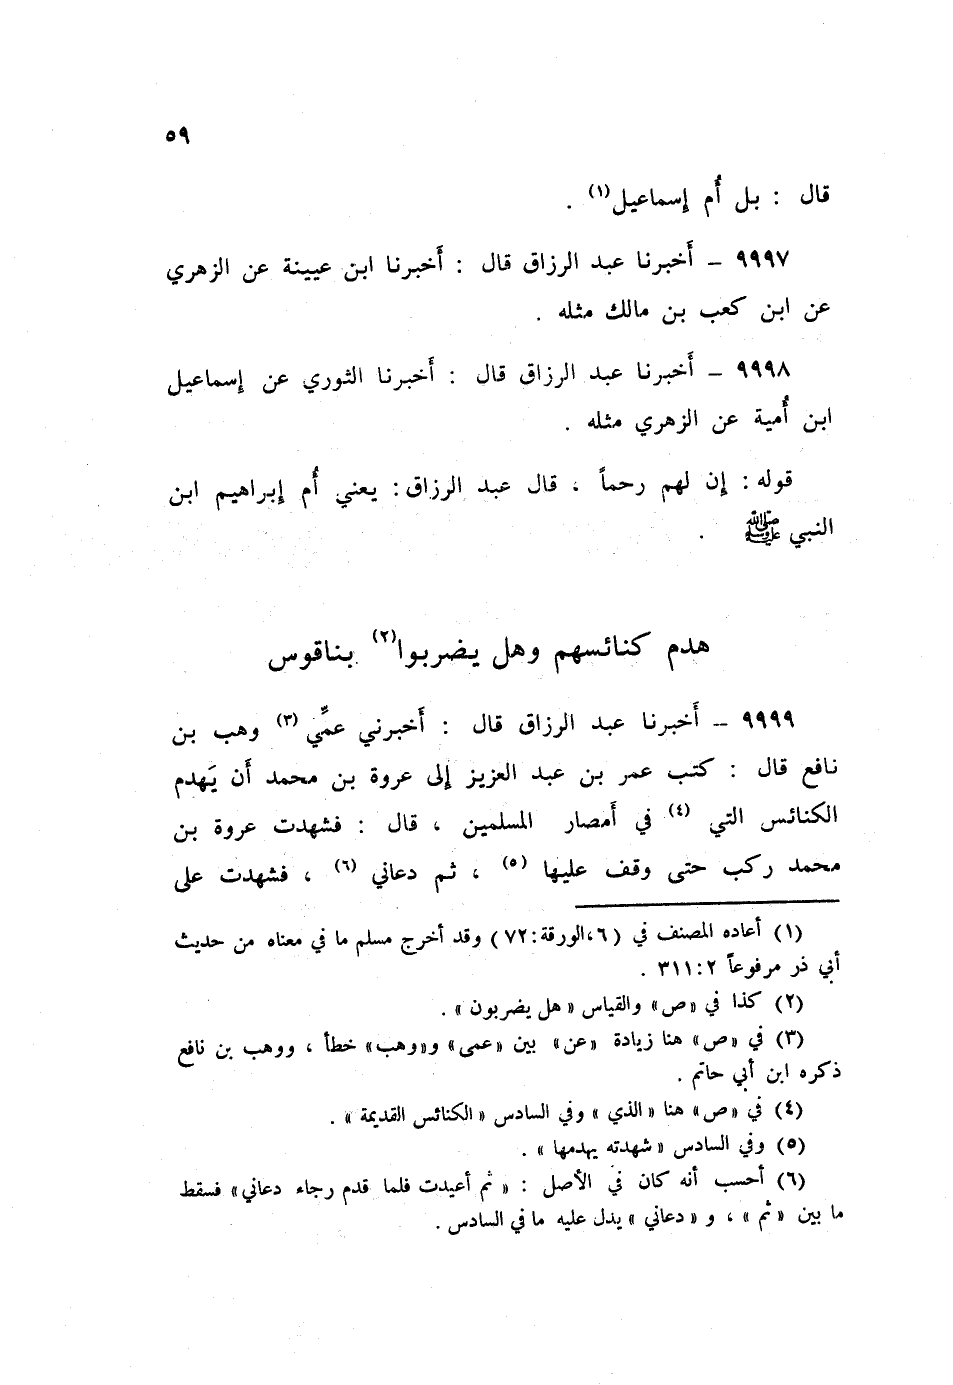 ٥٩
قال : بل أُم إسماعيل(١) .
٩٩٩٧ ــ أَخبرنا عبد الرزاق قال : أَخبرنا ابن عيينة عن الزهري
عن ابن كعب بن مالك مثله .
٩٩٩٨ ــ أَخبرنا عبد الرزاق قال : أَخبرنا الثوري عن إسماعيل
ابن أُمية عن الزهري مثله .
قوله : إن لهم رحماً ، قال عبد الرزاق : يعني أُم إبراهيم ابن
النبي ﷺ .
هدم كنائسهم وهل يضربوا(٢) بناقوس
٩٩٩٩ ــ أَخبرنا عبد الرزاق قال : أَخبرني عمِّي (٣) وهب بن
نافع قال : كتب عمر بن عبد العزيز إلى عروة بن محمد أَن يَهدم
الكنائس التي (٤) في أَمصار المسلمين ، قال : فشهدت عروة بن
محمد ركب حتى وقف عليها (٥) ، ثم دعاني (٦) ، فشهدت على
(١) أعاده المصنف في (٦،الورقة:٧٢) وقد أخرج مسلم ما في معناه من حديث
أبي ذر مرفوعاً ٣١١:٢ .
(٢) كذا في «ص» والقياس «هل يضربون» .
(٣) في «ص» هنا زيادة «عن» بين «عمى» و«وهب» خطأ ، ووهب بن نافع
ذكره ابن أبي حاتم .
(٤) في «ص» هنا «الذي» وفي السادس «الكنائس القديمة» .
(٥) وفي السادس «شهدته يهدمها» .
(٦) أحسب أنه كان في الأصل : «ثم أعيدت فلما قدم رجاء دعاني» فسقط
ما بين «ثم» ، و «دعاني» يدل عليه ما في السادس .